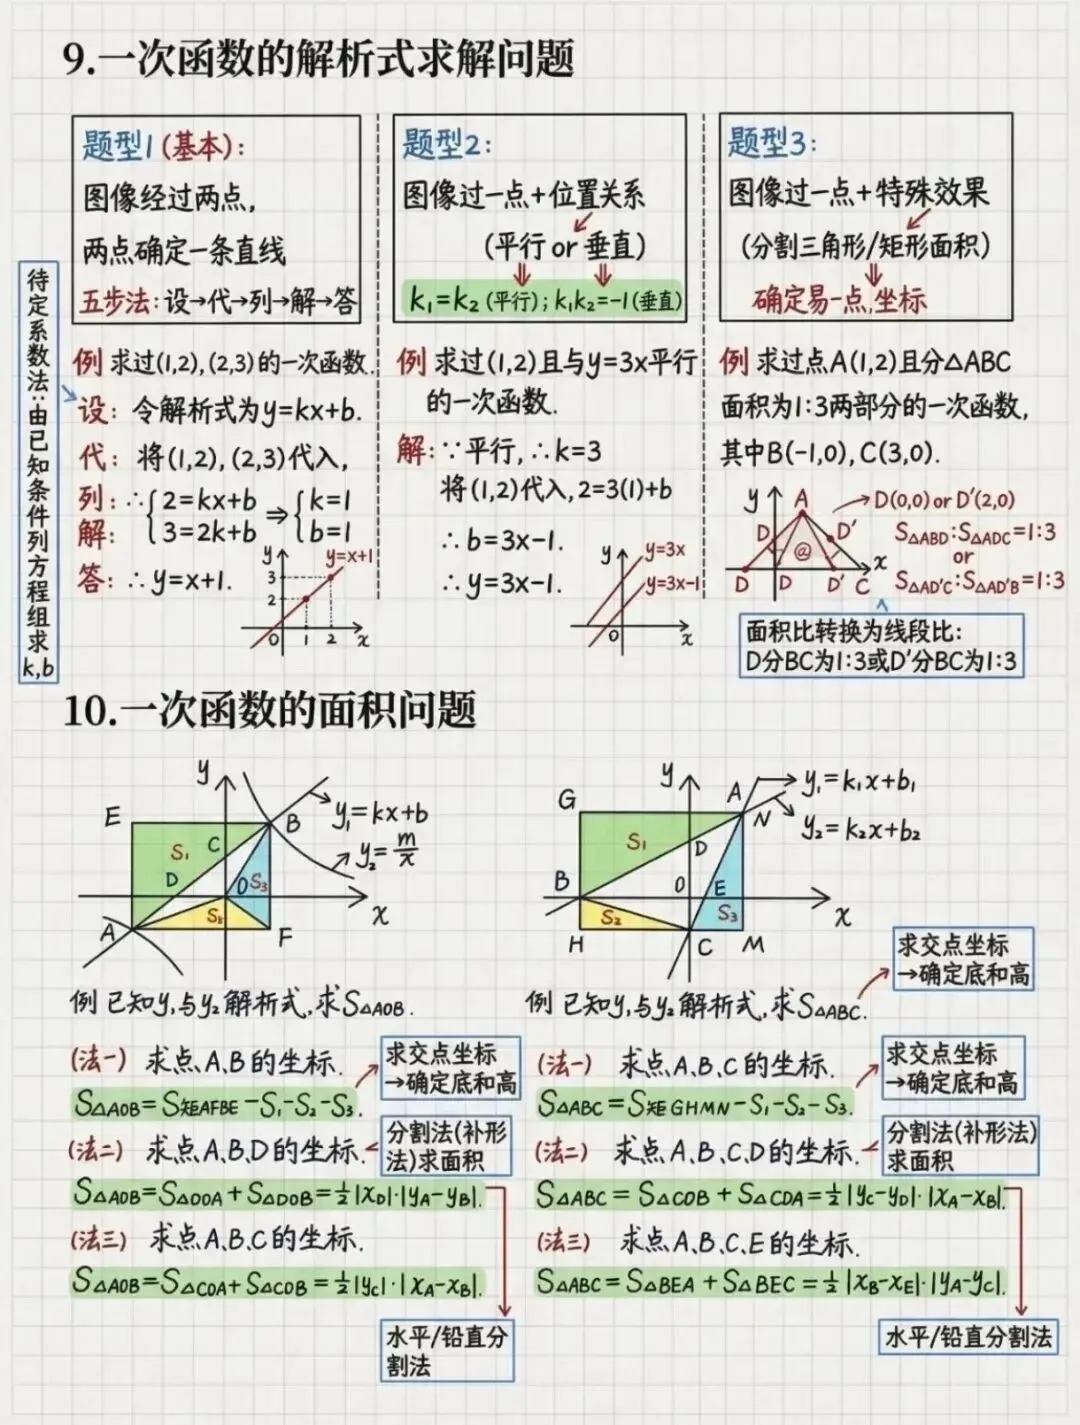 9.一次函数的解析式求解问题
题型1(基本):
图像经过两点,
两点确定一条直线
五步法:设→代→列→解→答
题型2:
图像过一点+位置关系
(平行or垂直)
k₁=k₂(平行);k₁k₂=-1(垂直)
题型3:
图像过一点+特殊效果
(分割三角形/矩形面积)
确定易一点,坐标
待定系数法:由已知条件列方程组求k,b
例 求过(1,2),(2,3)的一次函数.
设: 令解析式为y=kx+b.
代: 将(1,2),(2,3)代入,
列: ∴{2=kx+b ⇒ {k=1
解: 3=2k+b b=1
答: ∴y=x+1.
y
y=x+1
3
2
0 1 2 x
例 求过(1,2)且与y=3x平行
的一次函数.
解: ∵平行,∴k=3
将(1,2)代入,2=3(1)+b
∴b=3x-1.
∴y=3x-1.
y
y=3x
y=3x-1
0 x
例 求过点A(1,2)且分△ABC
面积为1:3两部分的一次函数,
其中B(-1,0),C(3,0).
y A
D(0,0)or D'(2,0)
D @ D'
S△ABD:S△ADC=1:3
or
S△AD'C:S△AD'B=1:3
D D D' C x
面积比转换为线段比:
D分BC为1:3或D'分BC为1:3
10.一次函数的面积问题
y
E B y₁=kx+b
S₁ C y₂=m/x
D O S₃
x
A S₂ F
例 已知y₁与y₂解析式,求S△AOB.
(法一) 求点A、B的坐标.
求交点坐标
→确定底和高
S△AOB=S矩AFBE-S₁-S₂-S₃.
(法二) 求点A、B、D的坐标.
分割法(补形
法)求面积
S△AOB=S△DOA+S△DOB=½|xD|·|yA-yB|.
(法三) 求点A、B、C的坐标.
S△AOB=S△COA+S△COB=½|yC|·|xA-xB|.
水平/铅直分
割法
y
G A y₁=k₁x+b₁
N y₂=k₂x+b₂
S₁ D
B O E
x
S₂ S₃
H C M
求交点坐标
→确定底和高
例 已知y₁与y₂解析式,求S△ABC.
(法一) 求点A、B、C的坐标.
求交点坐标
→确定底和高
S△ABC=S矩GHMN-S₁-S₂-S₃.
(法二) 求点A、B、C、D的坐标.
分割法(补形法)
求面积
S△ABC=S△CDB+S△CDA=½|yC-yD|·|xA-xB|.
(法三) 求点A、B、C、E的坐标.
S△ABC=S△BEA+S△BEC=½|xB-xE|·|yA-yC|.
水平/铅直分割法